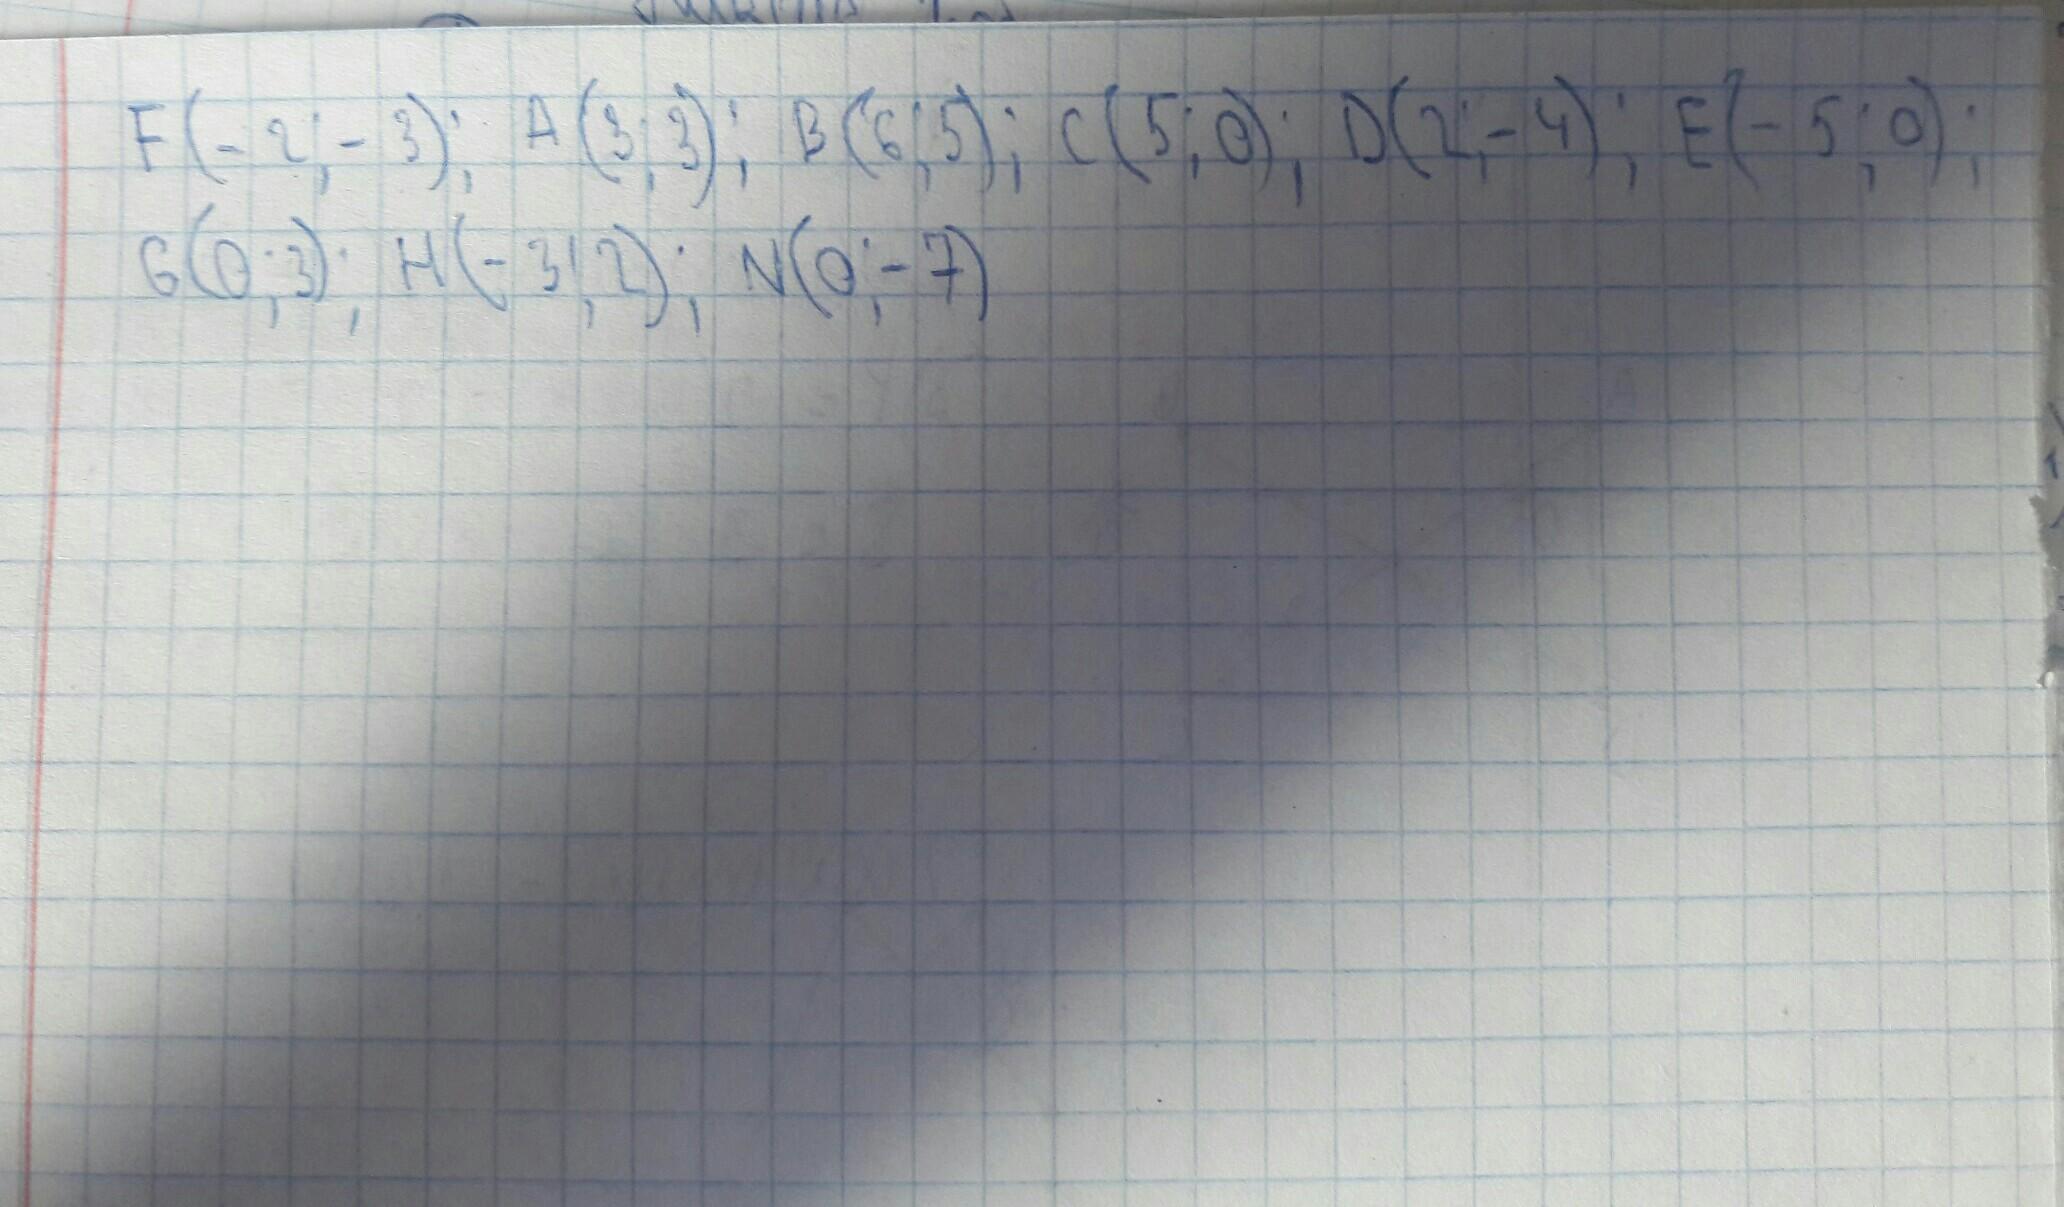 F(-2;-3); A(3;3); B(6;5); C(5;0); D(2;-4); E(-5;0);
G(0;3); H(-3;2); N(0;-7)